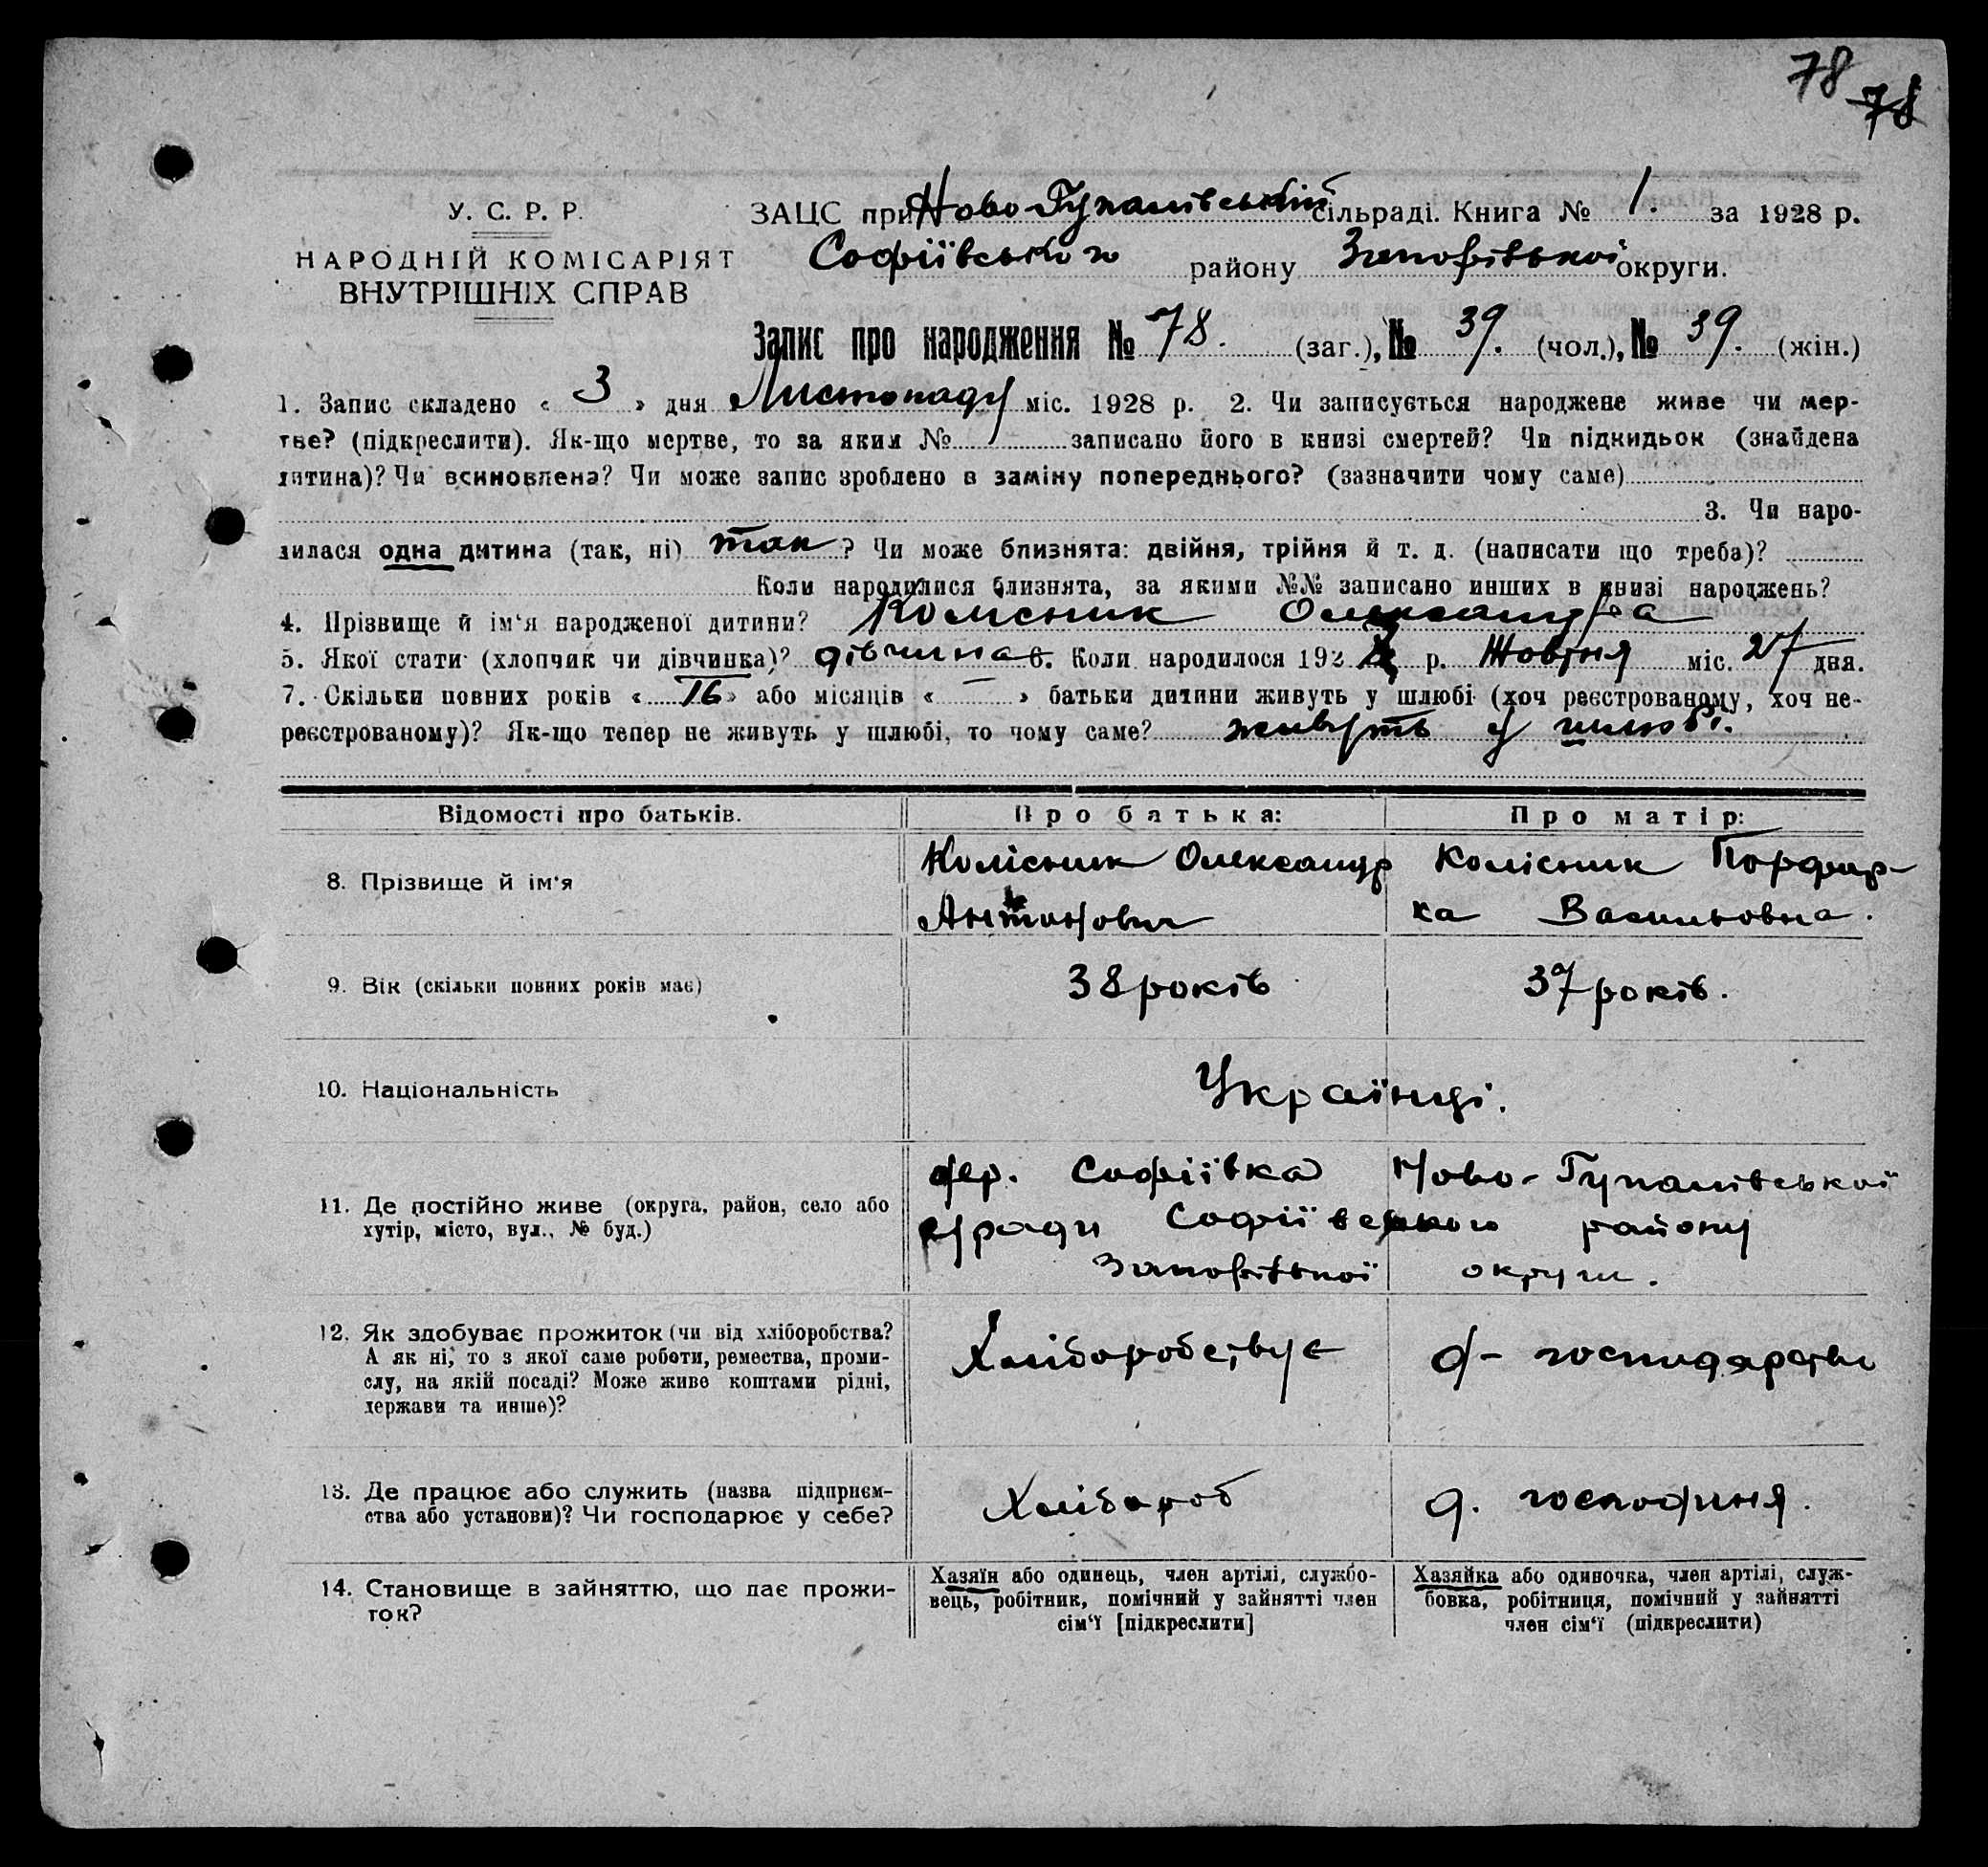 78
78
У. С. Р. Р.
НАРОДНІЙ КОМІСАРІЯТ
ВНУТРІШНІХ СПРАВ
ЗАЦС при Ново Гупалівській сільраді. Книга № 1. за 1928 р.
Софіївського району Запорізької округи.
Запис про народження № 78. (заг.), № 39. (чол.), № 39. (жін.)
1. Запис складено « 3 » дня Листопаду міс. 1928 р. 2. Чи записується народжене живе чи мер-
тве? (підкреслити). Як-що мертве, то за яким № записано його в книзі смертей? Чи підкидьок (знайдена
дитина)? Чи всиновлена? Чи може запис зроблено в заміну попереднього? (зазначити чому саме)
3. Чи наро-
дилася одна дитина (так, ні) так ? Чи може близнята: двійня, трійня й т. д. (написати що треба)?
Коли народилися близнята, за якими №№ записано инших в книзі народжень?
4. Прізвище й ім‘я народженої дитини? Колісник Олександра
5. Якої стати (хлопчик чи дівчинка)? дівчина 6. Коли народилося 192 р. Жовтня міс. 27 дня.
7. Скільки повних років « 16 » або місяців « — » батьки дитини живуть у шлюбі (хоч реєстрованому, хоч не-
реєстрованому)? Як-що тепер не живуть у шлюбі, то чому саме? живуть у шлюбі.
Відомості про батьків. Про батька: Про матір:
8. Прізвище й ім‘я
Колісник Олександр
Антонович
Колісник Порфир-
ка Васильовна.
9. Вік (скільки повних років має) 38 років 37 років.
10. Національність Українці.
11. Де постійно живе (округа, район, село або
хутір, місто, вул., № буд.)
дер. Софіївка Ново-Гупалівської
с/ради Софіївського району
Запорізької округи.
12. Як здобуває прожиток (чи від хліборобства?
А як ні, то з якої саме роботи, ремества, проми-
слу, на якій посаді? Може живе коштами рідні,
держави та инше)?
Хліборобствує
д- господарство
13. Де працює або служить (назва підприєм-
ства або установи)? Чи господарює у себе?
Хлібороб
д. господиня.
14. Становище в зайняттю, що дає прожи-
ток?
Хазяїн або одинець, член артілі, службо-
вець, робітник, помічний у зайнятті член
сім‘ї [підкреслити]
Хазяйка або одиночка, член артілі, служ-
бовка, робітниця, помічний у зайнятті
член сім‘ї (підкреслити)